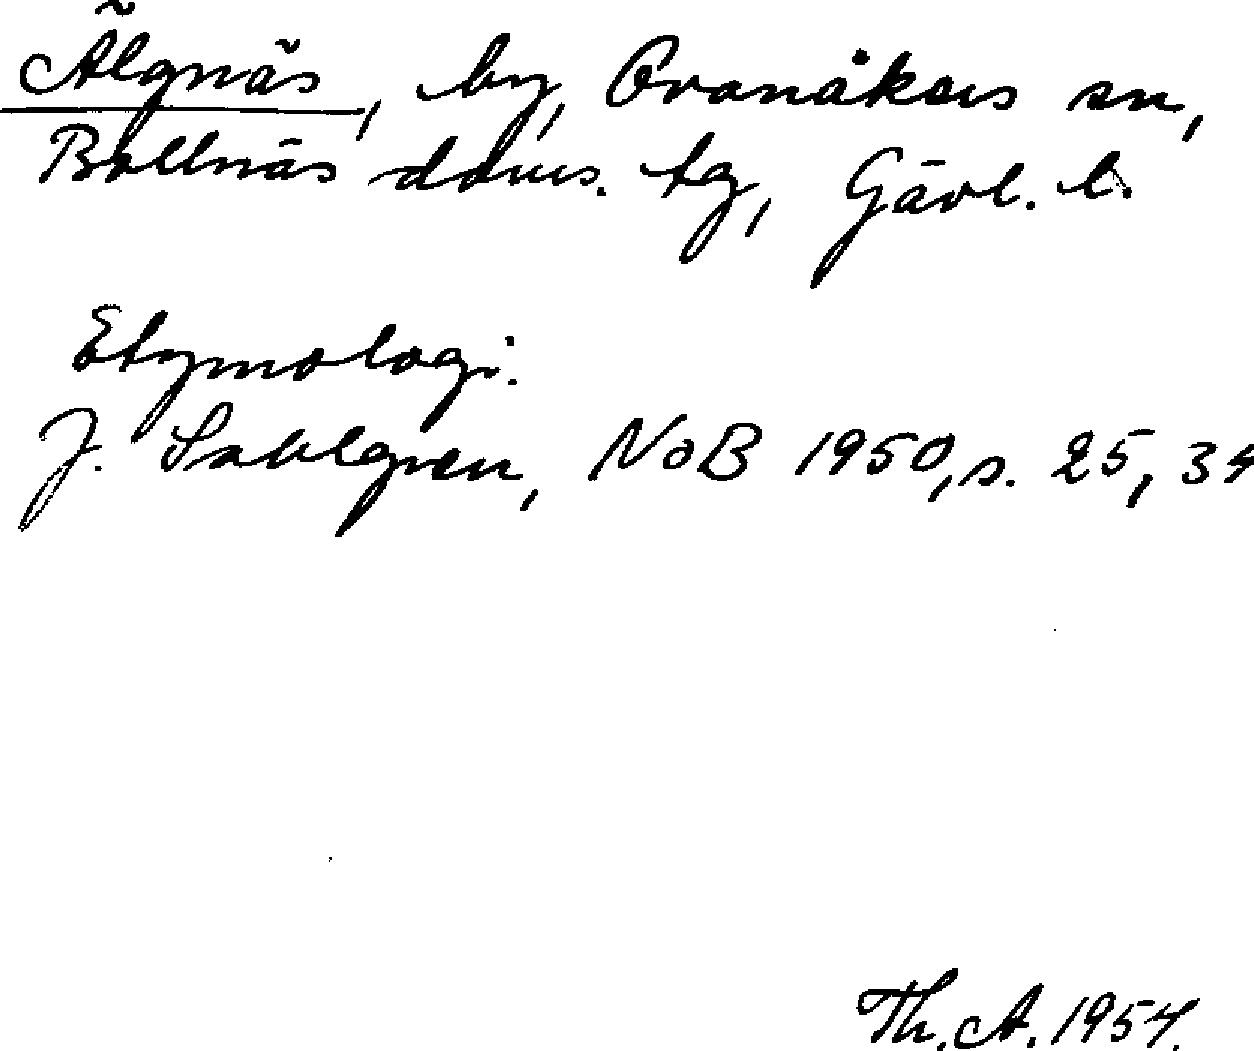 Älgnäs, by, Ovanåkers sn,
Bollnäs doms. tg, Gävl. l.
Etymologi.
J. Sahlgren, NoB 1950, s. 25, 34
Th. A. 1954.